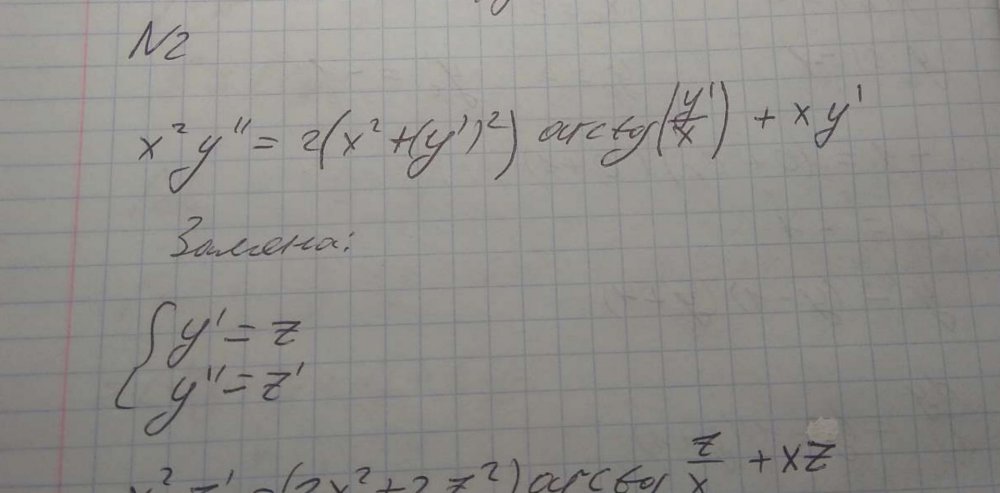 N2
x² y'' = 2(x² + (y')²) arctg(y'/x) + x y'
Замена:
{ y' = z
y'' = z'
x² z' = (2x² + 2z²) arctg z/x + xz